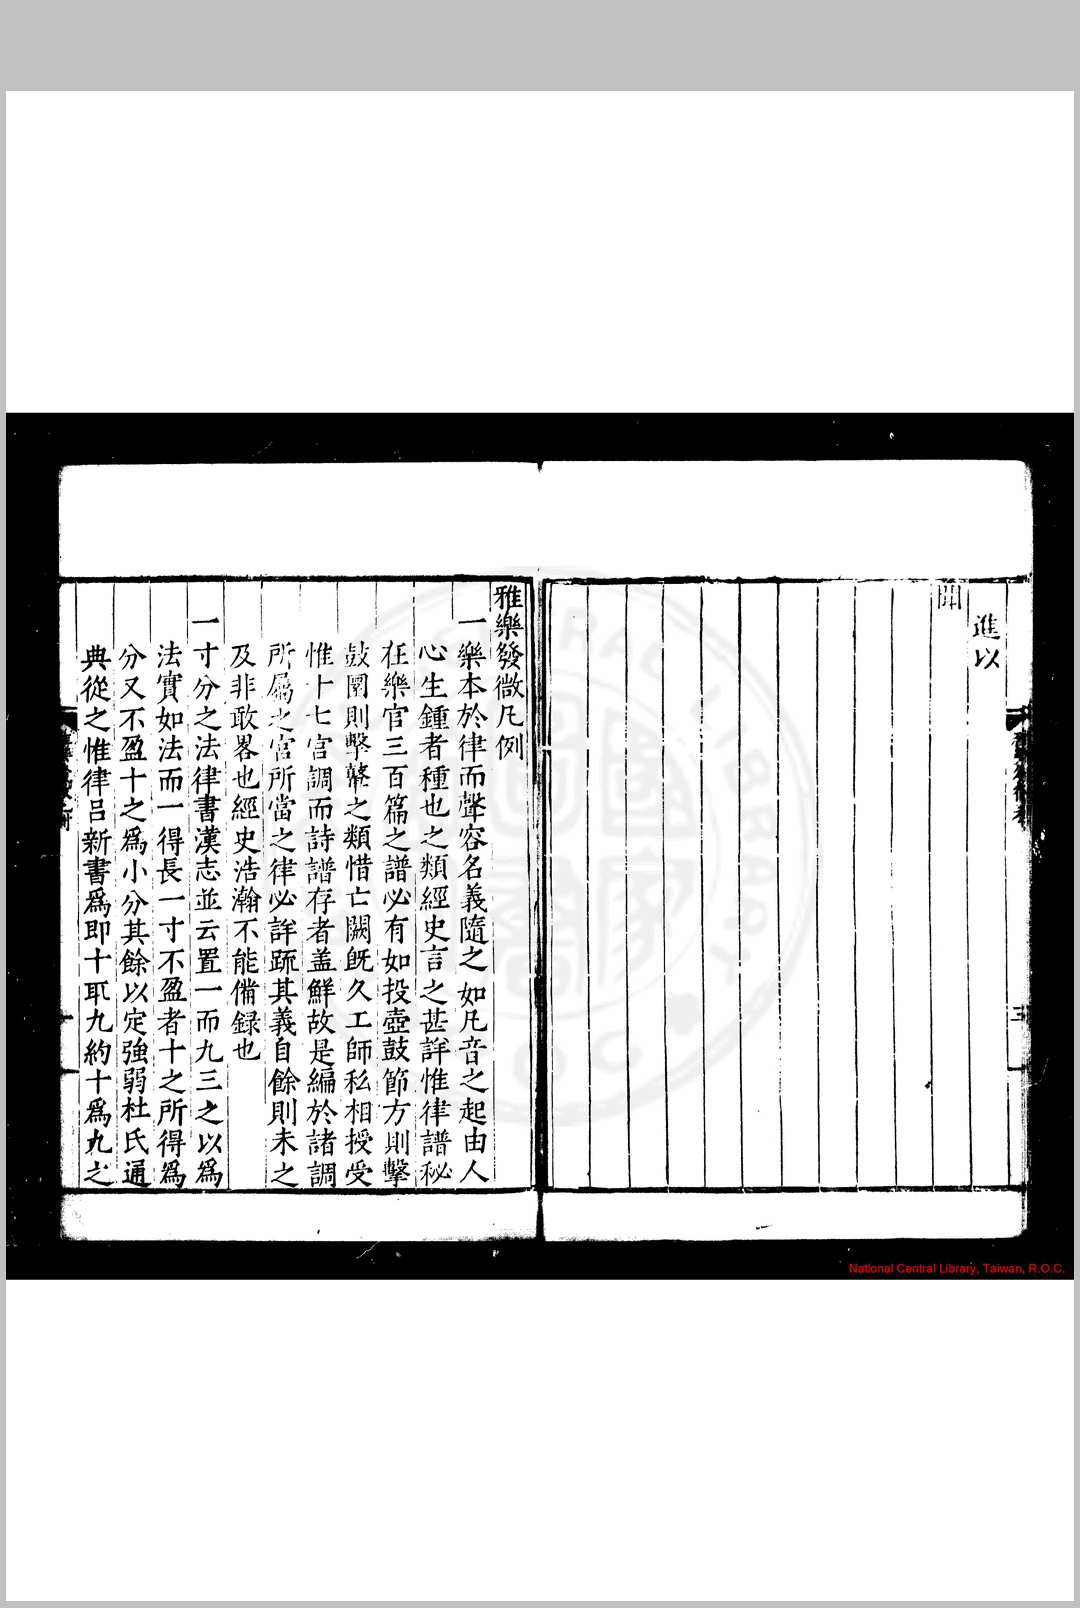 進以
聞
雅樂發微凡例
一樂本於律而聲容名義隨之如凡音之起由人
心生鍾者種也之類經史言之甚詳惟律譜秘
在樂官三百篇之譜必有如投壺鼓節方則擊
鼓圜則擊鼙之類惜亡闕旣久工師私相授受
惟十七宫調而詩譜存者盖鮮故是編於諸調
所屬之宮所當之律必詳䟽其義自餘則未之
及非敢畧也經史浩瀚不能備録也
一寸分之法律書漢志並云置一而九三之以爲
法實如法而一得長一寸不盈者十之所得爲
分又不盈十之爲小分其餘以定強弱杜氏通
典從之惟律吕新書爲即十取九約十爲九之
National Central Library, Taiwan, R.O.C.